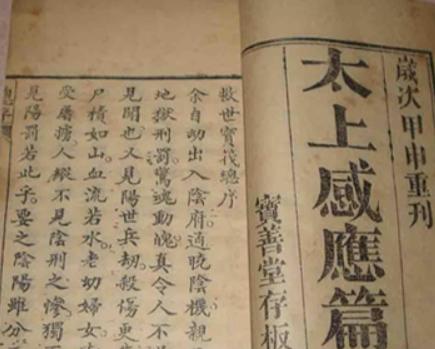 歲次甲申重刊
太上感應篇
寶善堂存板
救世寶筏總序
余自幼出入陰府適曉陰機親
地獄刑罰驚魂動魄真令人不
見聞也又見陽世兵劫殺傷更
尸積如山血流若水老幼婦女
受屠擄人縱不見陰刑之慘獨
見陽罰若此乎要之陰陽雖分